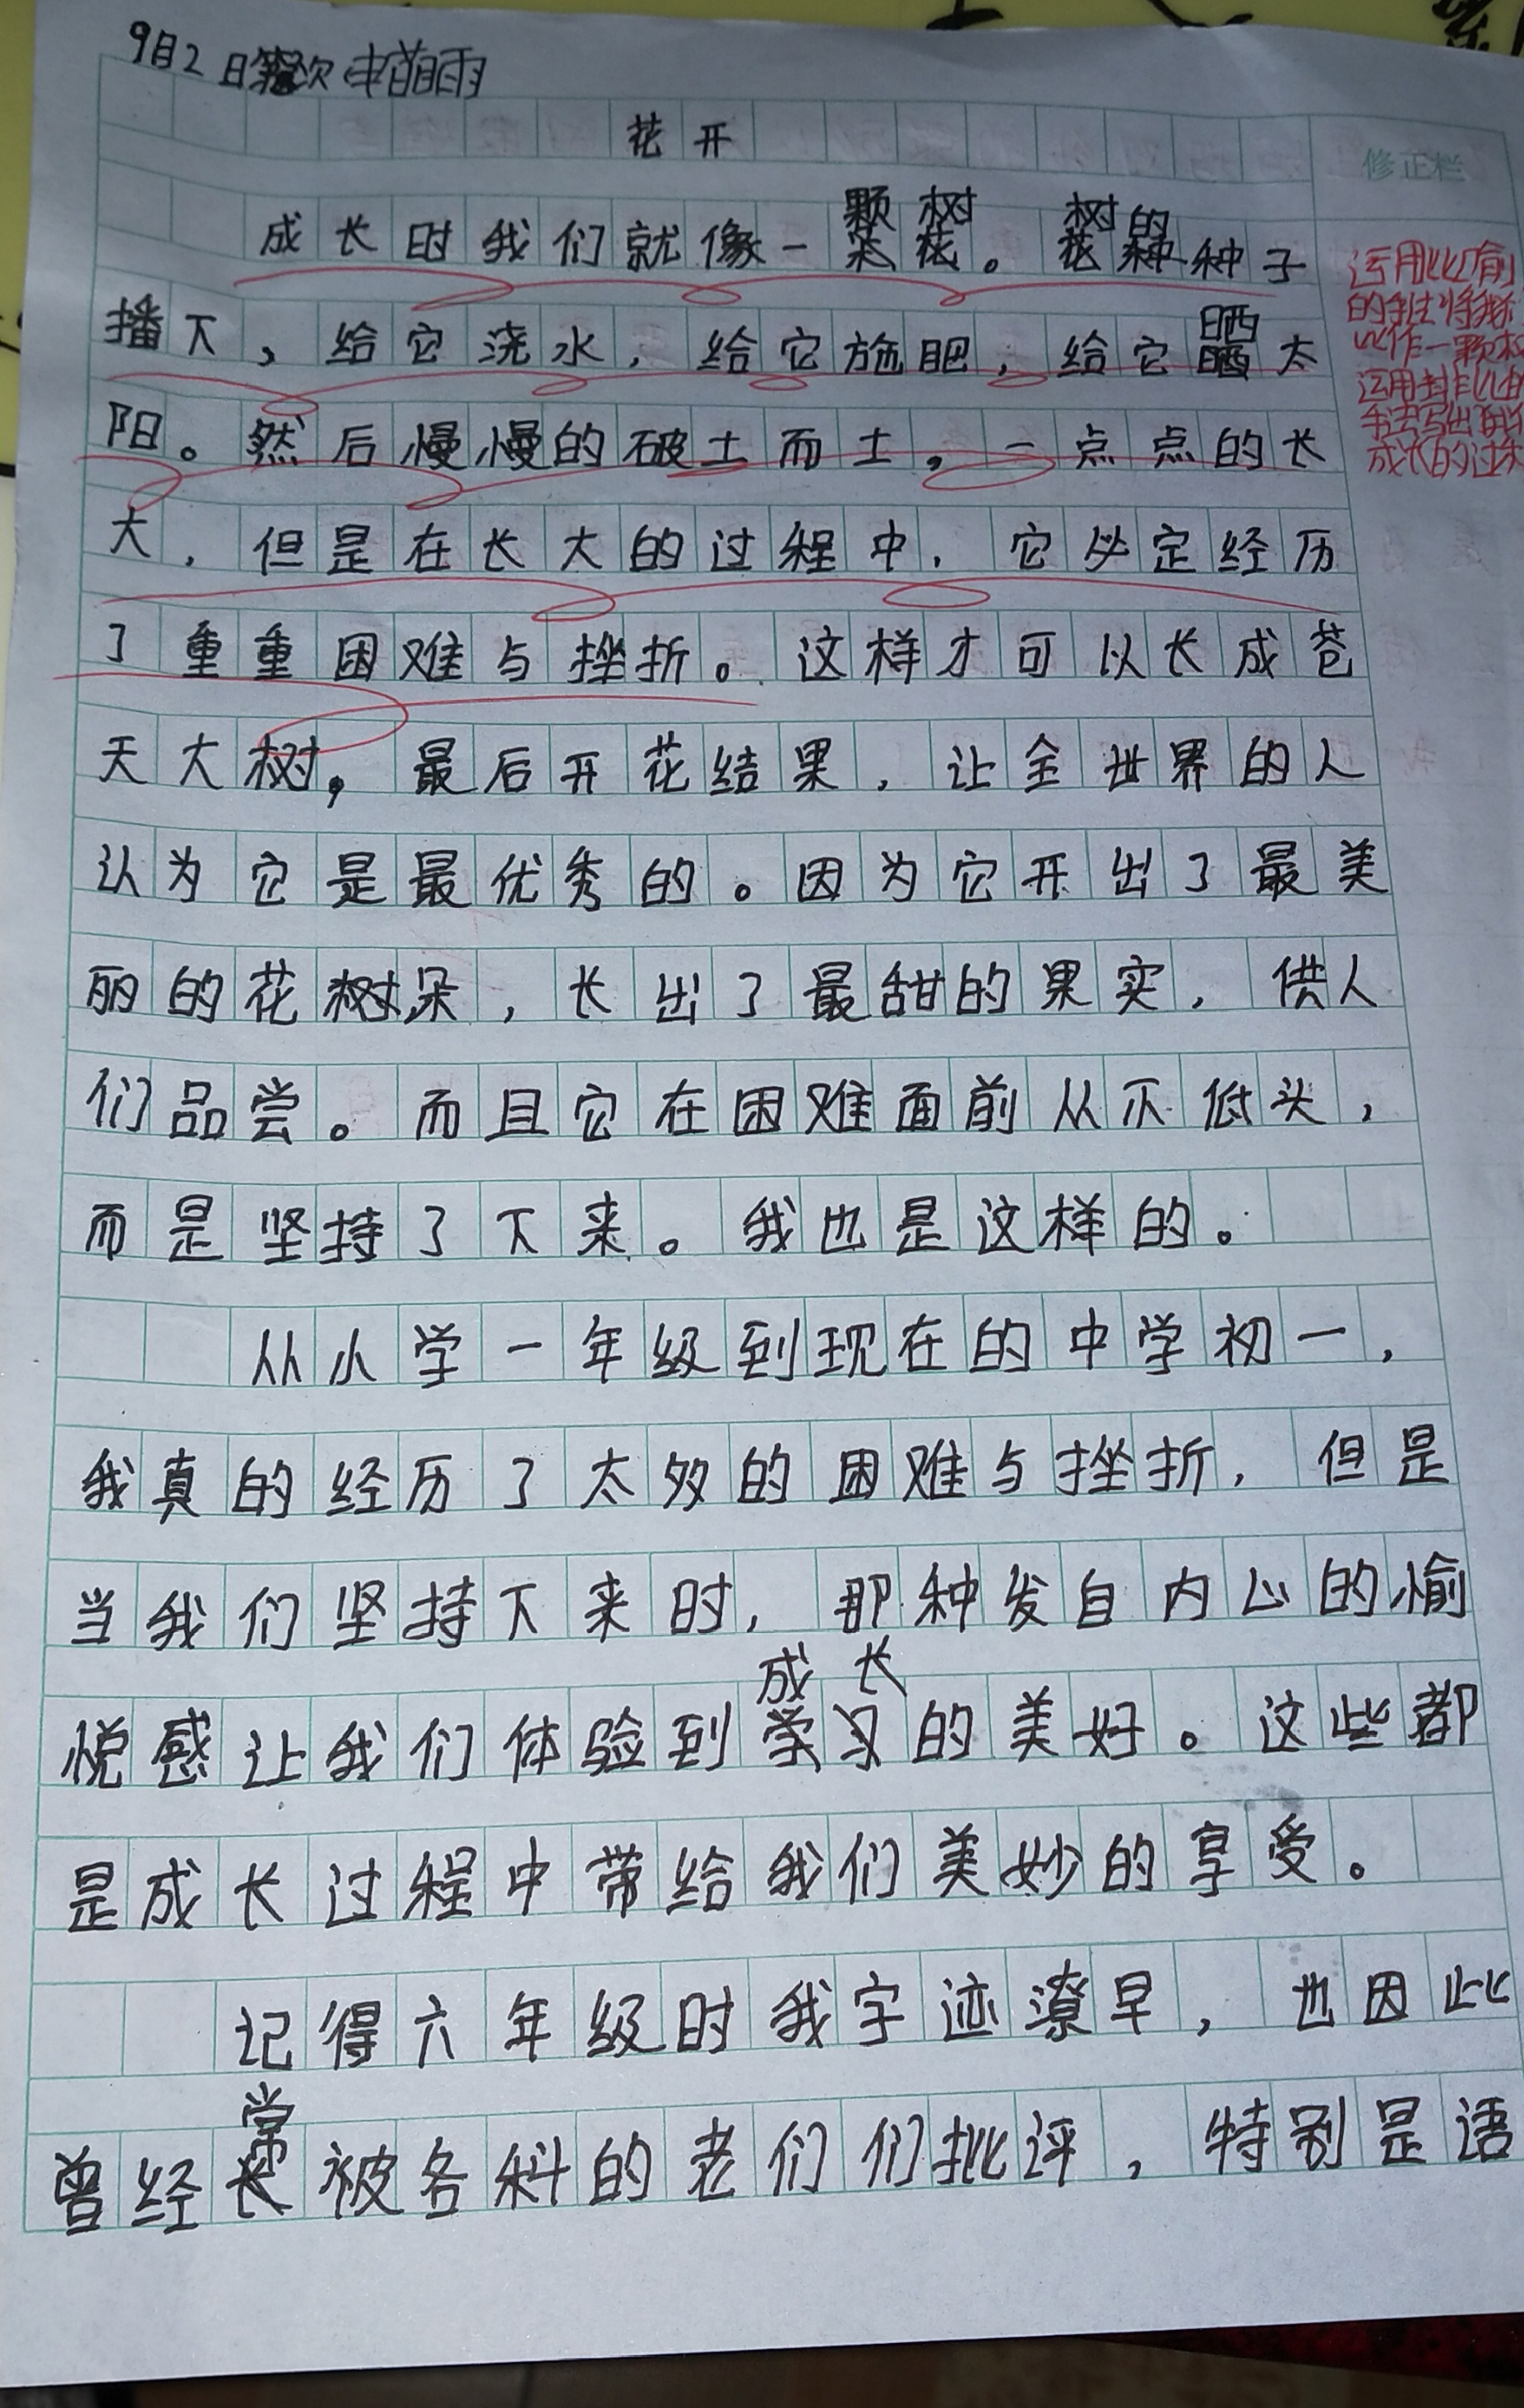 9月2日 次
花开
修正栏
颗树 树的
成长时我们就像一朵花。花种种子
播下，给它浇水，给它施肥，给它晒太
阳。然后慢慢的破土而土。一点点的长
大，但是在长大的过程中，它必定经历
了重重困难与挫折。这样才可以长成苍
天大树，最后开花结果，让全世界的人
认为它是最优秀的。因为它开出了最美
丽的花树朵，长出了最甜的果实，供人
们品尝。而且它在困难面前从不低头，
而是坚持了下来。我也是这样的。
从小学一年级到现在的中学初一，
我真的经历了太多的困难与挫折，但是
当我们坚持下来时，那种发自内心的愉
成长
悦感让我们体验到学习的美好。这些都
是成长过程中带给我们美妙的享受。
记得六年级时我字迹潦早，也因此
常
曾经长被各科的老们们批评，特别是语
运用比喻
的手法将我
比作一颗树
运用排比的
手法写出
成长的过程